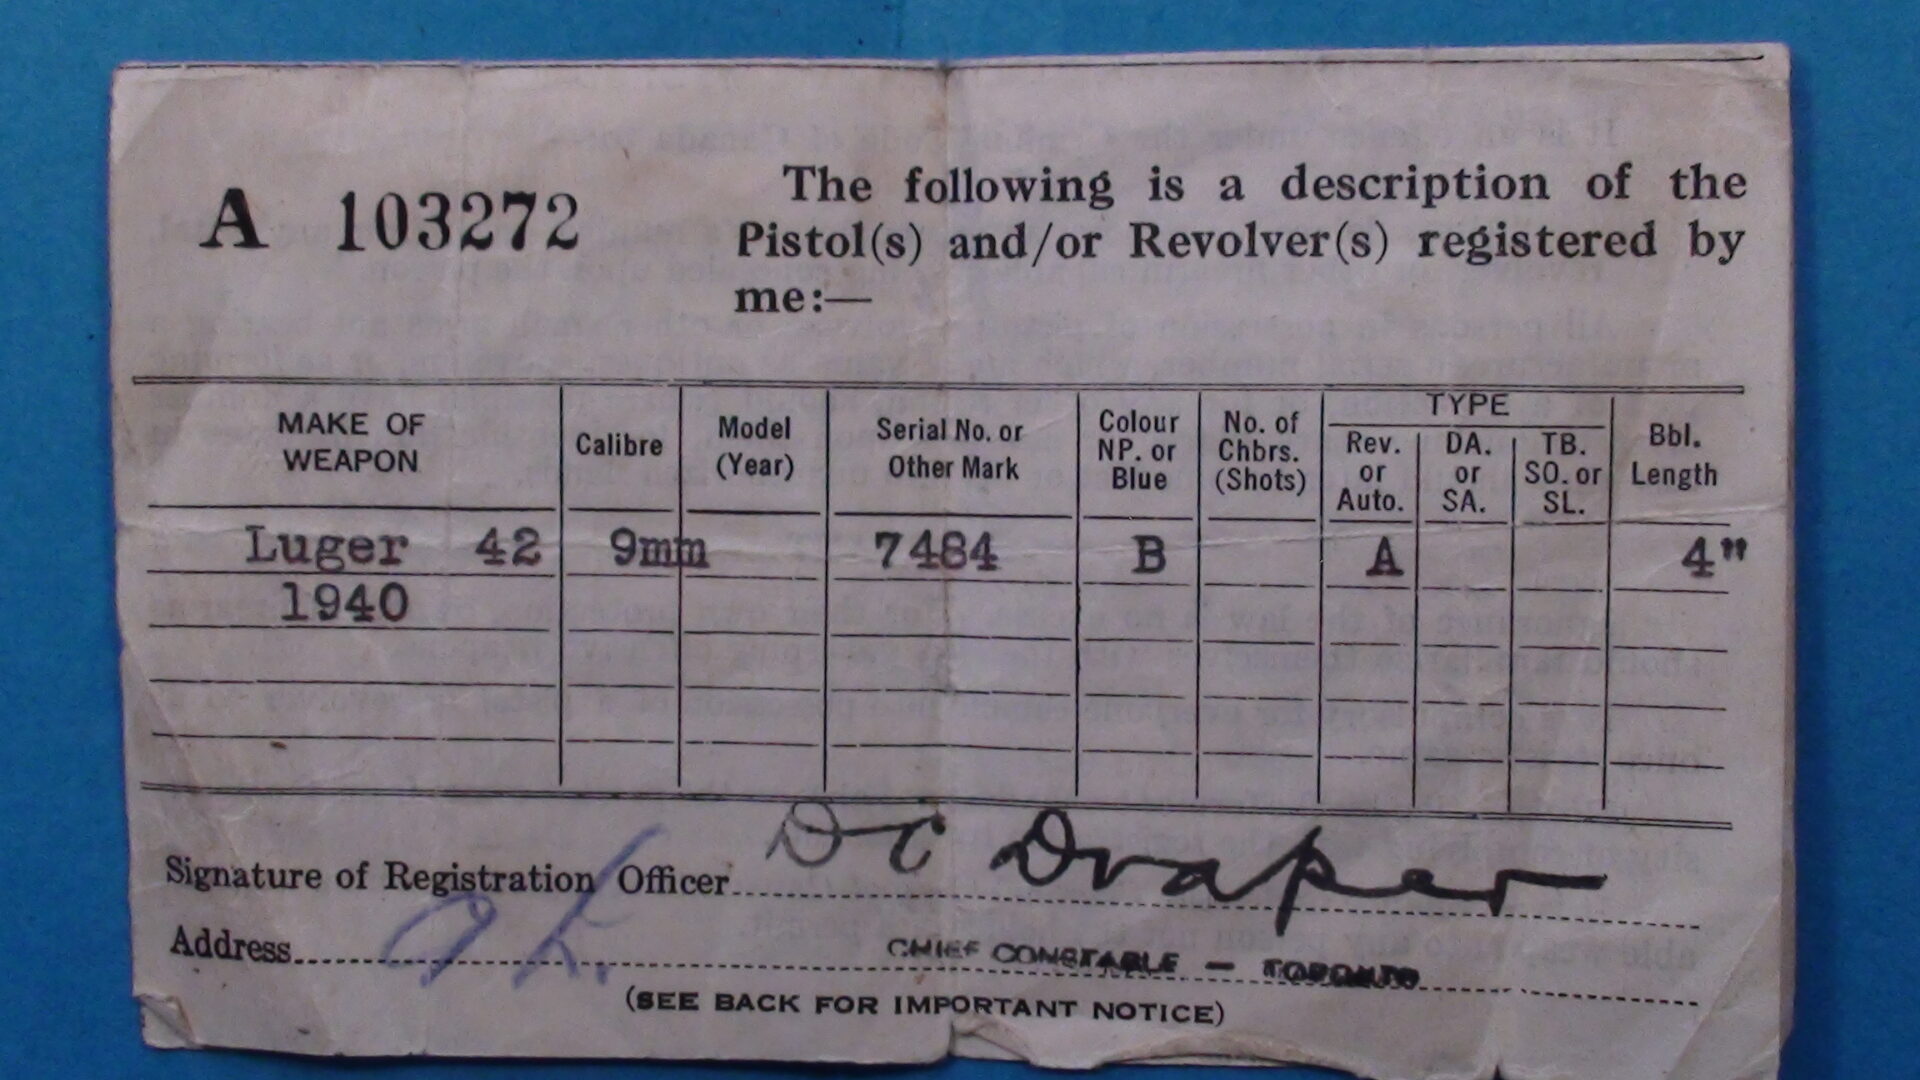 A 103272
The following is a description of the
Pistol(s) and/or Revolver(s) registered by
me:—
MAKE OF WEAPON Calibre Model (Year) Serial No. or Other Mark Colour NP. or Blue No. of Chbrs. (Shots) TYPE Rev. or Auto. DA. or SA. TB. SO. or SL. Bbl. Length
Luger 42 9mm 7484 B A 4"
1940
Signature of Registration Officer DC Draper
Address CHIEF CONSTABLE — TORONTO
(SEE BACK FOR IMPORTANT NOTICE)